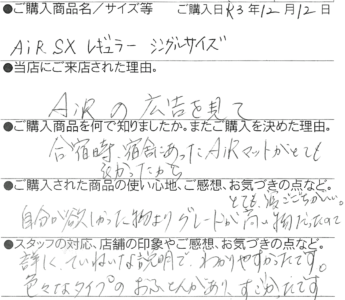 ●ご購入商品名/サイズ等 ご購入日 R3年12月12日
AiR SX レギュラー シングルサイズ
●当店にご来店された理由。
AiRの広告を見て
●ご購入商品を何で知りましたか。またご購入を決めた理由。
合宿時、宿舎にあったAiRマットがとても
良かったから
●ご購入された商品の使い心地、ご感想、お気づきの点など。
とても、寝ごこちがいい。
自分が欲しかった物よりグレードが高い物だったので
●スタッフの対応、店舗の印象やご感想、お気づきの点など。
詳しく、ていねいな説明で、わかりやすかったです。
色々なタイプのおふとんがあり、すごかったです